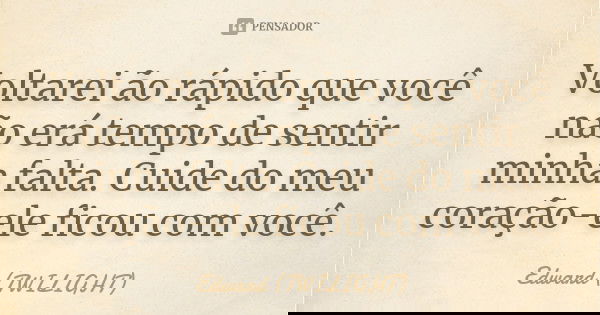 PENSADOR
Voltarei ão rápido que você
não erá tempo de sentir
minha falta. Cuide do meu
coração-ele ficou com você.
Edward (TWILIGHT)